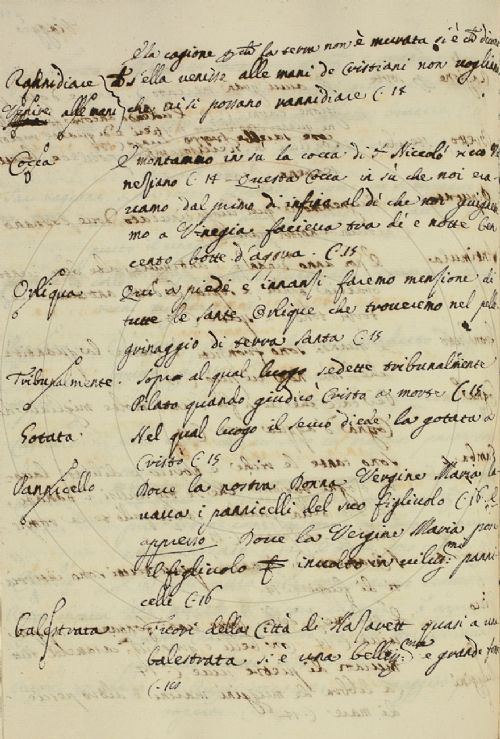 E la cagione ꝑ ch̃ la terra non è murata si è ch̃ dicono
Rannidiare s'ella venisse alle mani de Cristiani non vogliono
Venire alle mani che vi si possano rannidiare C. 14
Cocca E montammo in su la cocca di S. Niccolò
nesiano C. 14 Questa Cocca in su che noi era-
vamo dal primo dì infino al dì che noi giugnem-
mo a Vinegia faceva tra dì e notte ben
cento botte d'acqua C. 15
Orliqua Qui a piede e innansi faremo mensione di
tutte le sante Orlique che troveremo nel pele
grinaggio di terra santa C. 15
Tribunalmente. Sopra al qual luogo sedette tribunalmente
Pilato quando giudicò Cristo a morte C. 15
Gotata Nel qual luogo il servo diede la gotata a
Cristo C. 15
Pannicello Dove la nostra Donna Vergine Maria la
vava i pannicelli del suo figlivolo C. 16.
appresso Dove la Vergine Maria pose
il figlivolo involto in viliss.mi panni
celli C. 16
Balestrata Fuori della Città di Nasarett quasi a una
balestrata si è una belliss.ma e grande fon
C. 16